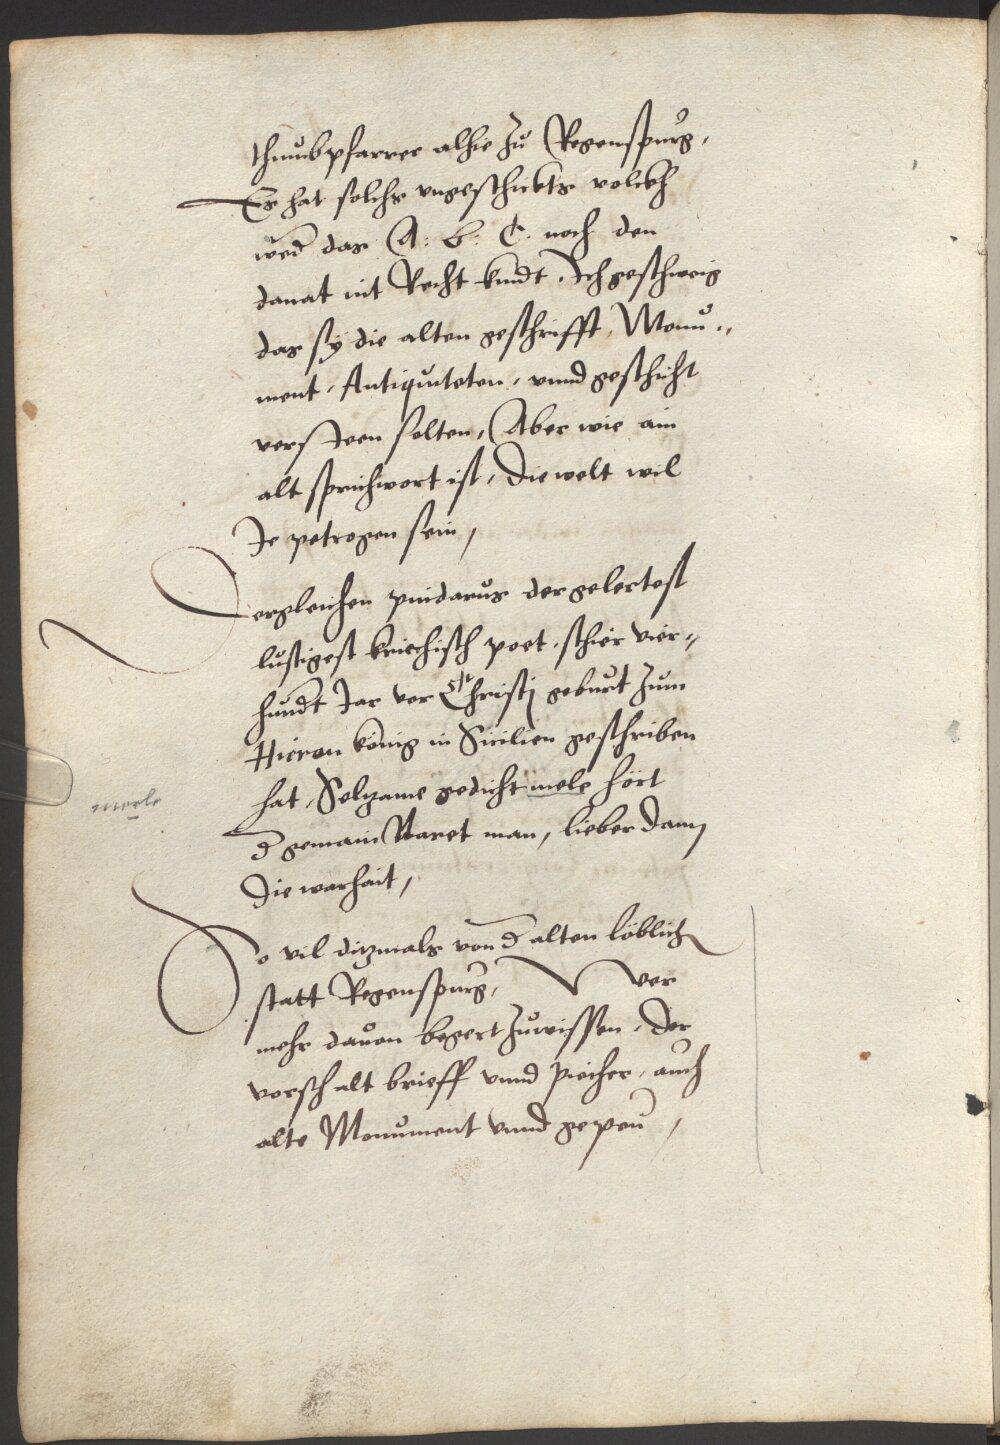 thumbpfarrer alhie zu Regenspurg,
Es hat solchs ungeschickts volckh
wed das A: b: C. noch den
donat nit Recht kundt. Ich geschweig
das sy die alten geschrifft, Monu„
ment, Antiquiteten, unnd geschicht
versteen solten, Aber wie ain
alt sprichwort ist, Die welt wil
Je petrogen sein,
Dergleichen pindarus der gelertest
lustigest kriechisch poet, schier vier„
hundt Jar vor Christj geburt zum
Hieron könig in Sicilien geschriben
hat, Selzame gedicht mele hört
merle
d gemain Naret man, lieber dann
die warhait,
So vil ditzmals von d alten löblich
statt Regenspurg, Wer
mehr davon begert zuwissen, Der
vorsch alt brieff unnd piecher, auch
alte Monument unnd gepeu,